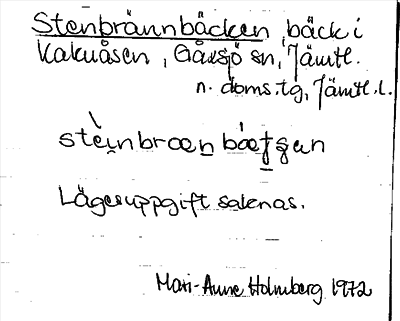 Stenbrännbäcken, bäck i
Kakuåsen, Gåxsjö sn, Jämtl.
n. doms.tg, Jämtl. l.
Lägesuppgift saknas.
Mari-Anne Holmberg 1972